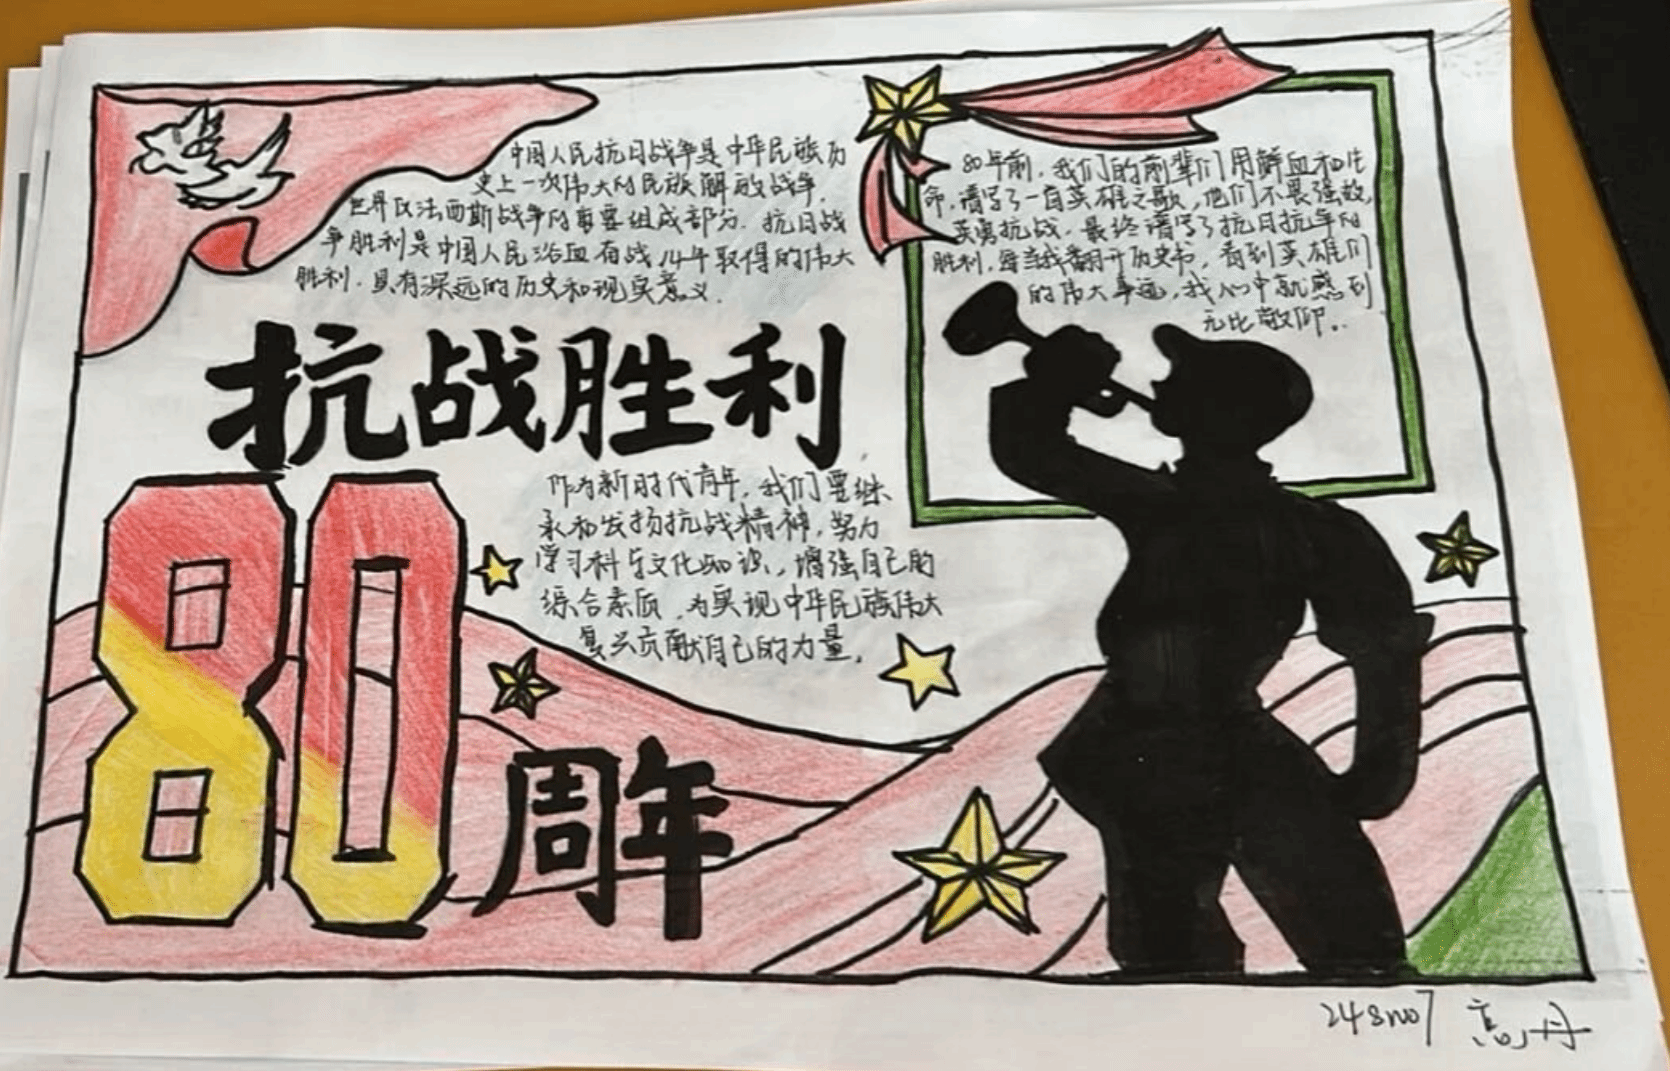 中国人民抗日战争是中华民族历
史上一次伟大的民族解放战争，
世界反法西斯战争的重要组成部分．抗日战
争胜利是中国人民浴血奋战14年取得的伟大
胜利．具有深远的历史和现实意义．
80年前，我们的前辈们用鲜血和生
命，谱写了一首英雄之歌，他们不畏强敌，
英勇抗战．最终谱写了抗日抗争的
胜利．每当我翻开历史书，看到英雄们
的伟大事迹，我心中就感到
无比敬仰．
抗战胜利
80
周年
作为新时代青年，我们要继
承和发扬抗战精神，努力
学习科学文化知识，增强自己的
综合素质．为实现中华民族伟大
复兴贡献自己的力量．
高丹